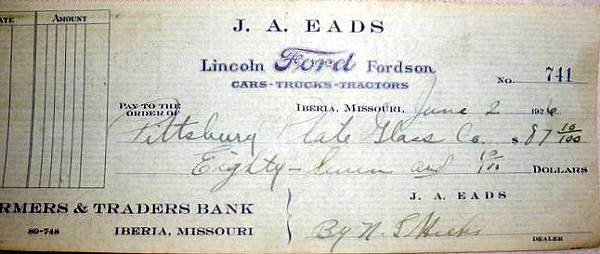 ATE AMOUNT
J. A. EADS
Lincoln Ford Fordson
CARS-TRUCKS-TRACTORS
NO. 741
IBERIA, MISSOURI, June 2 1926
PAY TO THE ORDER OF Pittsburg Plate Glass Co. $ 87 10/100
Eighty-Seven and 10/100 DOLLARS
J. A. EADS
RMERS & TRADERS BANK
80-748 IBERIA, MISSOURI
By N. S. Hicks
DEALER